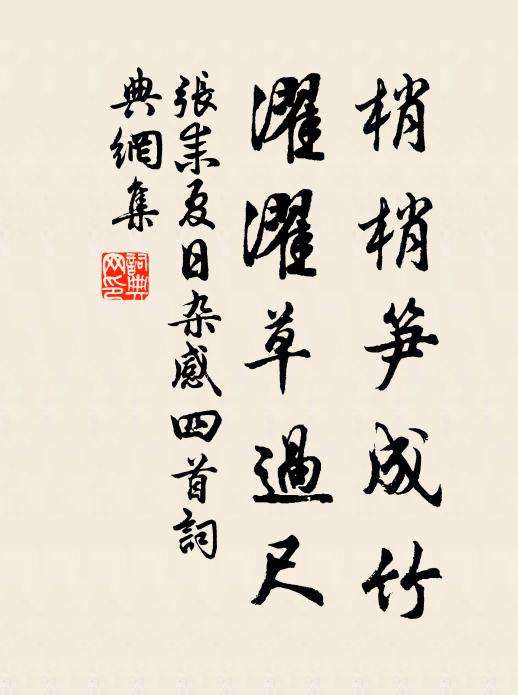 梢梢笋成竹
濯濯草過尺
張耒夏日杂感四首詞
典網集
詞典网印